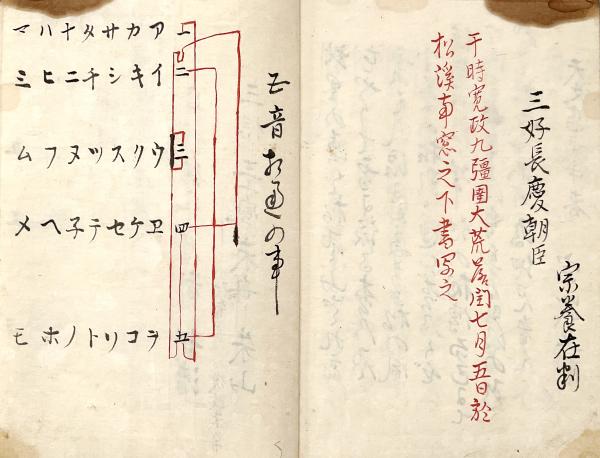 三好長慶朝臣
宗養在判
于時寛政九彊圉大荒落閏七月五日於
松溪南窓之下書写之
五音相通の事
一二三四五
アイウヱヲ
カキクケコ
サシスセソ
タチツテト
ナニヌ子ノ
ハヒフヘホ
マミムメモ